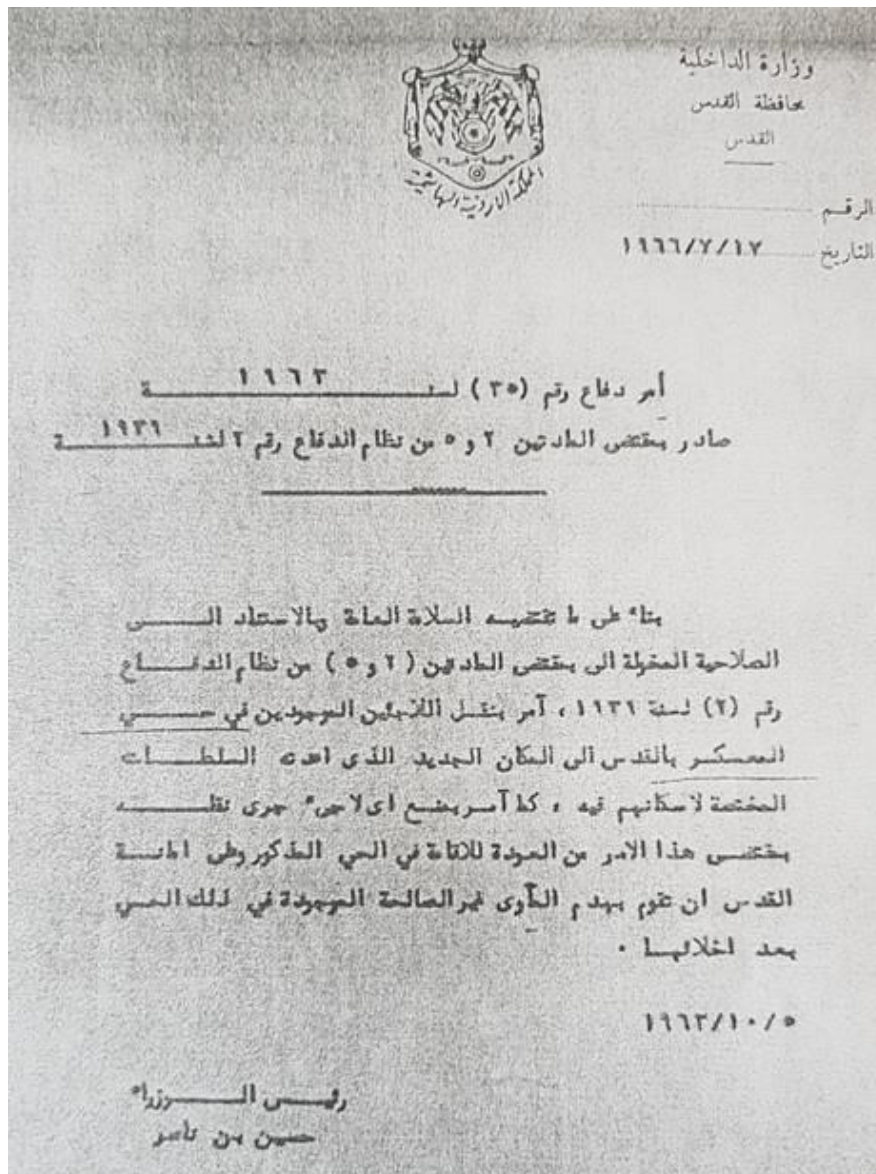 وزارة الداخلية
محافظة القدس
القدس
المملكة الاردنية الهاشمية
الرقم
التاريخ ١٩٦٦/٧/١٧
أمر دفاع رقم (٣٥) لسنة ١٩٦٣
صادر بمقتضى المادتين ٢ و ٥ من نظام الدفاع رقم ٢ لسنة ١٩٣٩
بناء على ما تقتضيه السلامة العامة وبالاستناد الى
الصلاحية المخولة الي بمقتضى المادتين (٢ و ٥) من نظام الدفاع
رقم (٢) لسنة ١٩٣٩ ، آمر بنقل اللاجئين الموجودين في حي
المعسكر بالقدس الى المكان الجديد الذي اعدته السلطات
المختصة لاسكانهم فيه ، كما آمر بمنع اي لاجيء جرى نقله
بمقتضى هذا الامر من العودة للاقامة في الحي المذكور وعلى امانة
القدس ان تقوم بهدم المآوى غير الصالحة الموجودة في ذلك الحي
بعد اخلائها .
١٩٦٣/١٠/٥
رئيس الوزراء
حسين بن ناصر